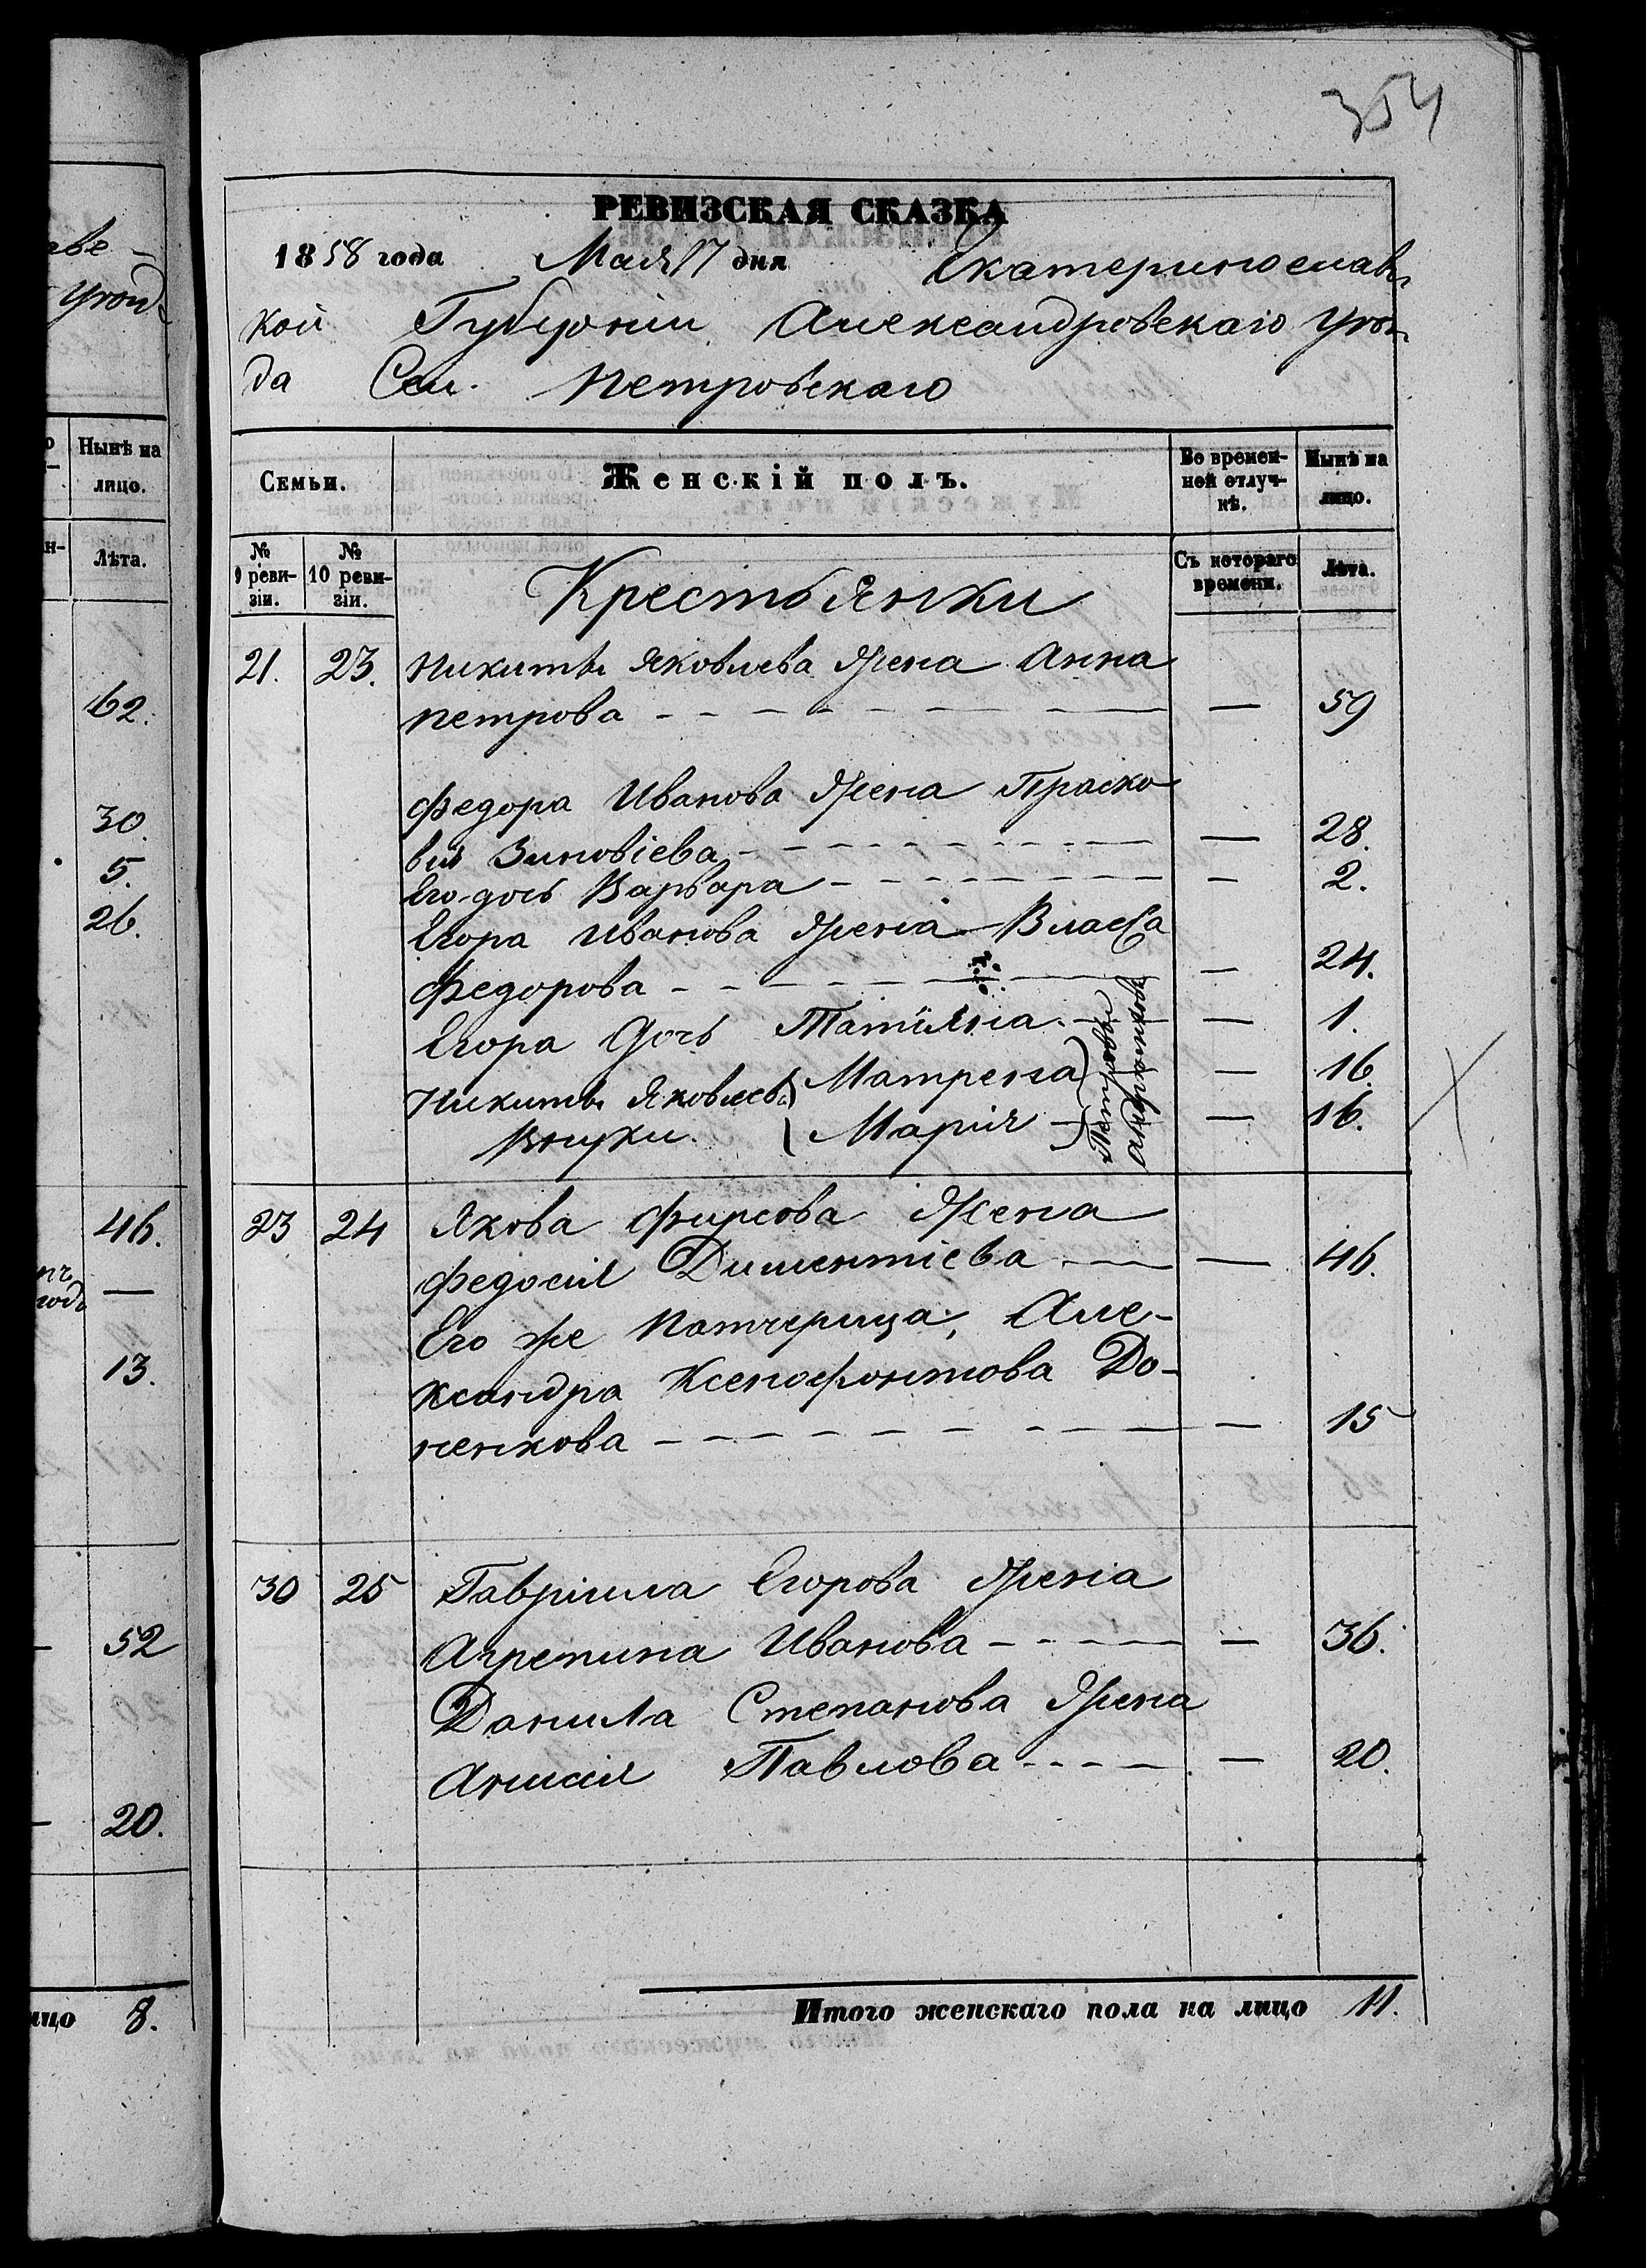 354
РЕВИЗСКАЯ СКАЗКА
1858 года Мая 17 дня Екатеринославс-
кой Губерніи Александровскаго Уѣз-
да Сел. Петровскаго
Семьи.
Женскій полъ.
Во времен-
ной отлуч-
кѣ.
Нынѣ на
лицо.
№
9 реви-
зіи.
№
10 реви-
зіи.
Крестьянки
Съ котораго
времени.
Лѣта.
21. 23. Никиты Яковлева Жена Анна
Петрова — 59
Федора Иванова Жена Праско
вія Зиновіева — 28.
Его дочь Варвара — 2.
Егора Иванова Жена Власса
Федорова — 24.
Егора Дочь Татіяна — 1.
Никиты Яковлева Матрена — 16.
Внуки. Марія — 16.
23 24 Якова Фирсова Жена
Федосія Диментіева — 46.
Его же Патчерица, Але-
ксандра Ксенофонтова До-
ненкова — 15
30 25 Гавріила Егорова Жена
Агрепина Иванова — 36.
Данила Степанова Жена
Анисія Павлова — 20.
Итого женскаго пола на лицо 11.
Нынѣ на
лицо.
Лѣта.
62.
30.
5.
26.
46.
—
13.
52
20.
8.